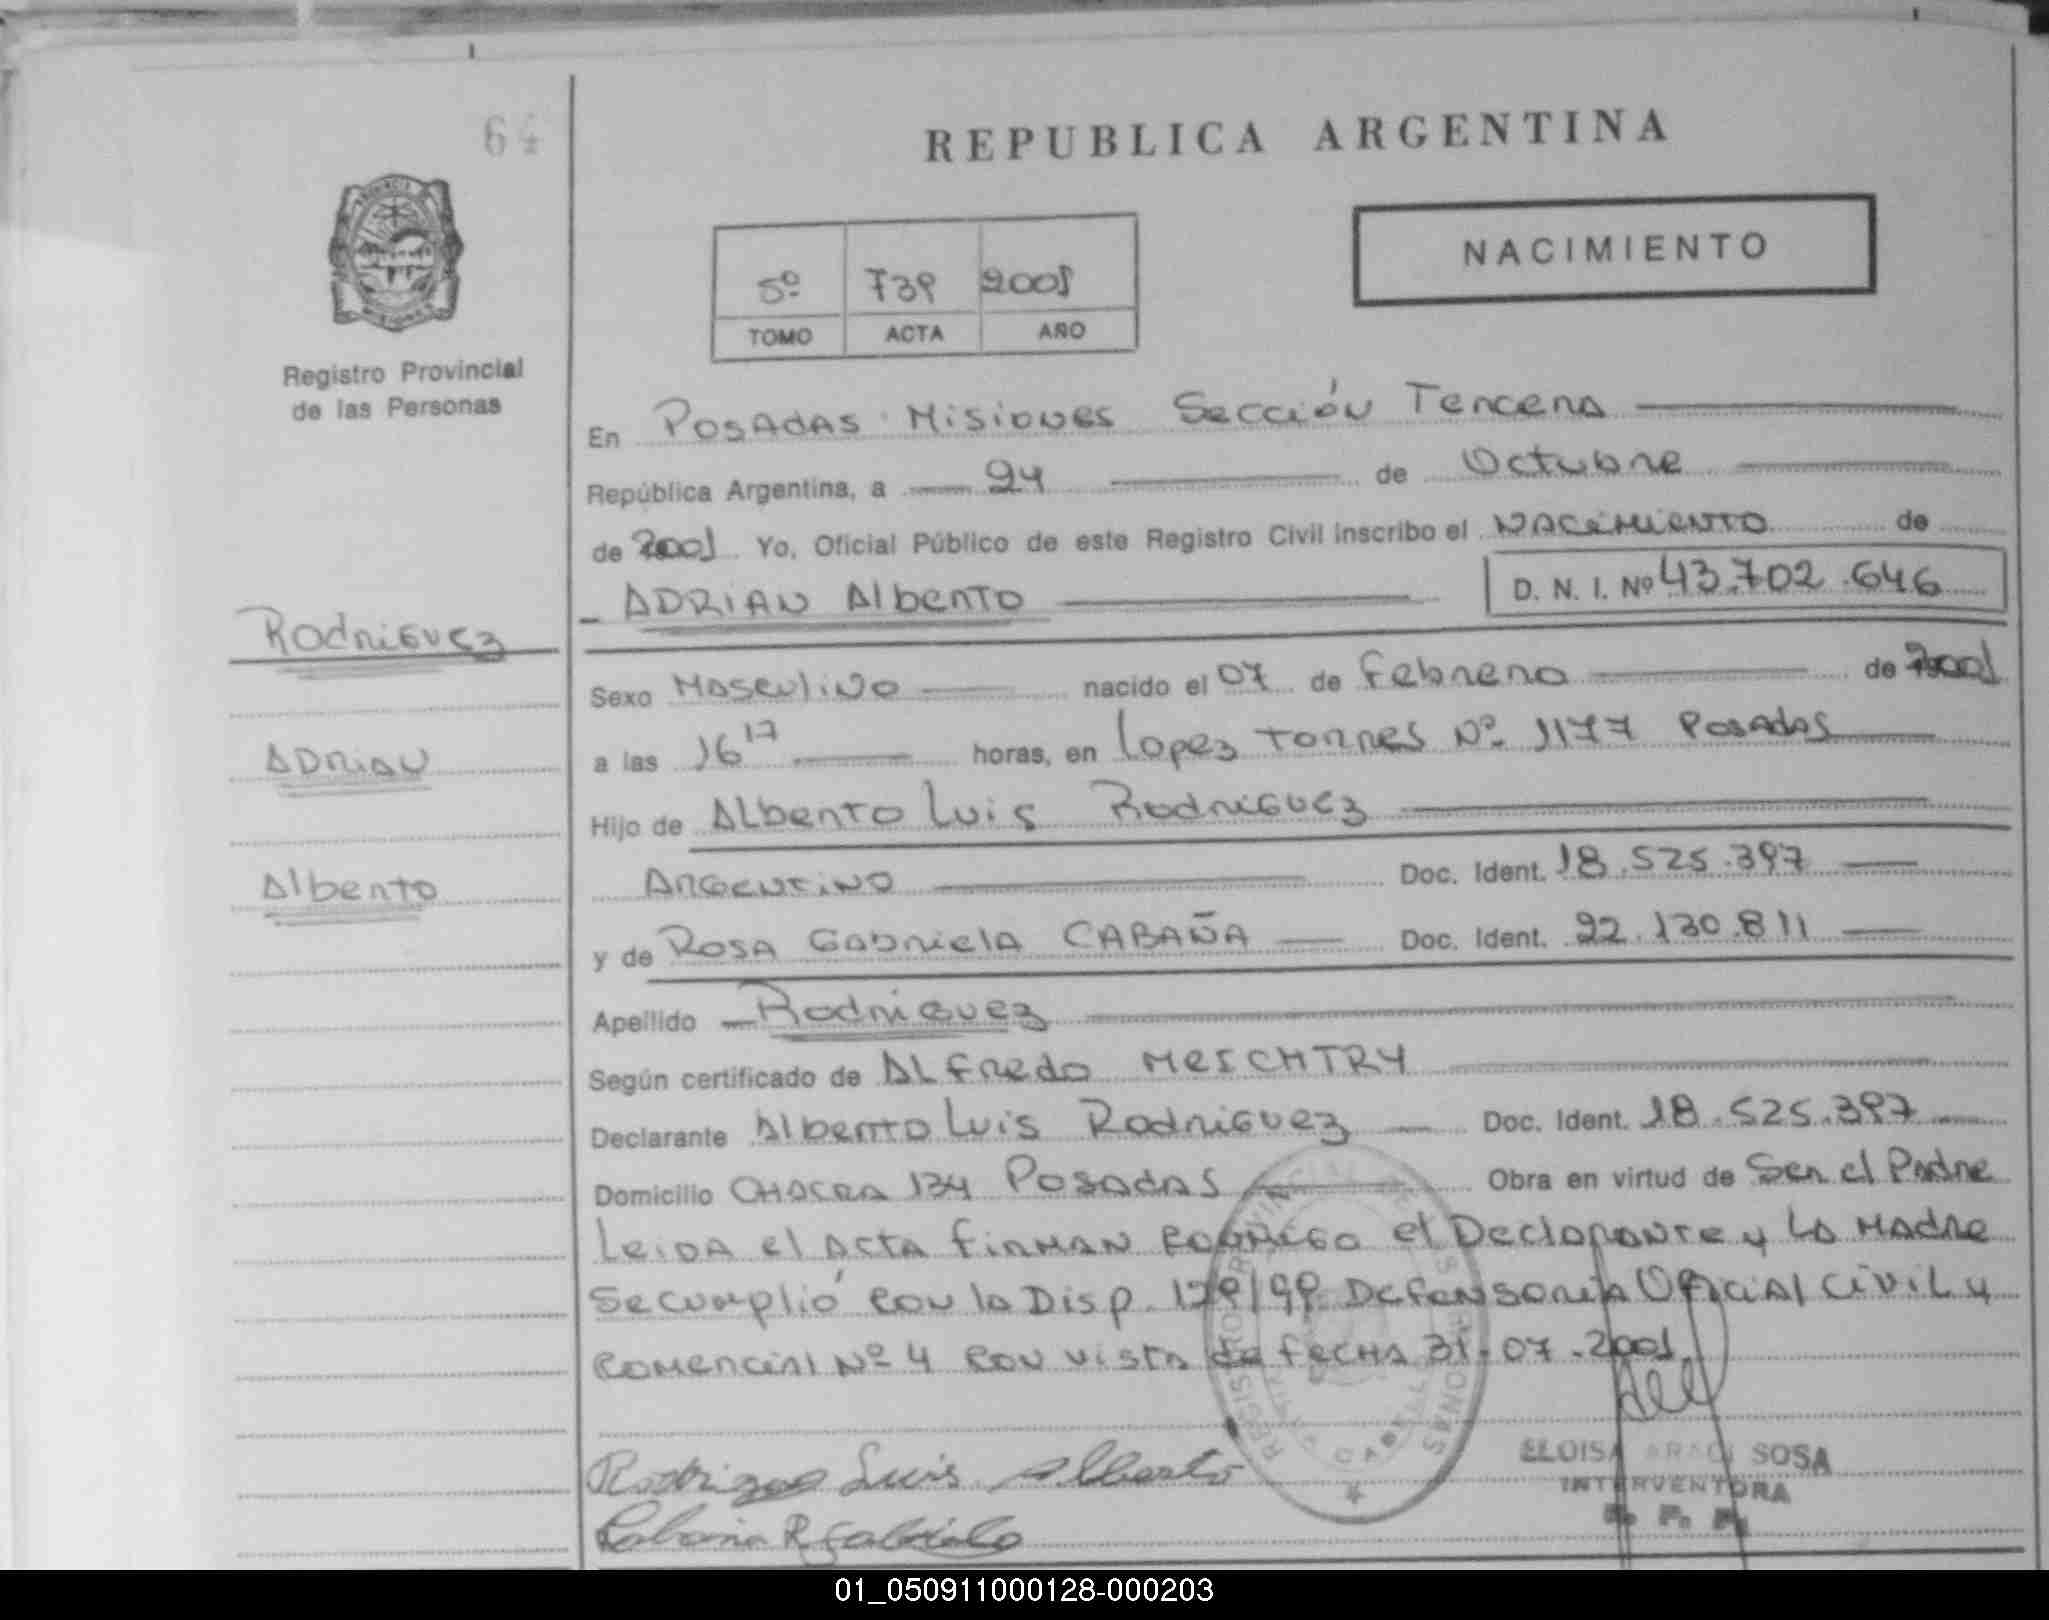 64
REPUBLICA ARGENTINA
NACIMIENTO
5º 739 2001
TOMO ACTA AÑO
Registro Provincial
de las Personas
En Posadas Misiones Sección Tercera
República Argentina, a 24 de Octubre
de 2001 Yo, Oficial Público de este Registro Civil inscribo el Nacimiento de
Adrian Alberto D. N. I. Nº 43.702.646
Rodriguez
Adrian
Alberto
Sexo Masculino nacido el 07 de Febrero de 2001
a las 16 17 horas, en Lopez Torres Nº 1177 Posadas
Hijo de Alberto Luis Rodriguez
Argentino Doc. Ident. 18.525.397
y de Rosa Gabriela CABAÑA Doc. Ident. 22.130.811
Apellido Rodriguez
Según certificado de Alfredo
Declarante Alberto Luis Rodriguez Doc. Ident. 18.525.397
Domicilio Chacra 134 Posadas Obra en virtud de Ser el Padre
Leida el acta firman conmigo el Declarante y la Madre
Se cumplió con la Disp. Defensoria Oficial Civil y
Comercial Nº 4 con vista de fecha 31-07-2001
Rodriguez Luis Alberto
Cabaña R Gabriela
REGISTRO PROVINCIAL DE LAS PERSONAS
ELOISA ARACI SOSA
INTERVENTORA
R. P. P.
01_050911000128-000203